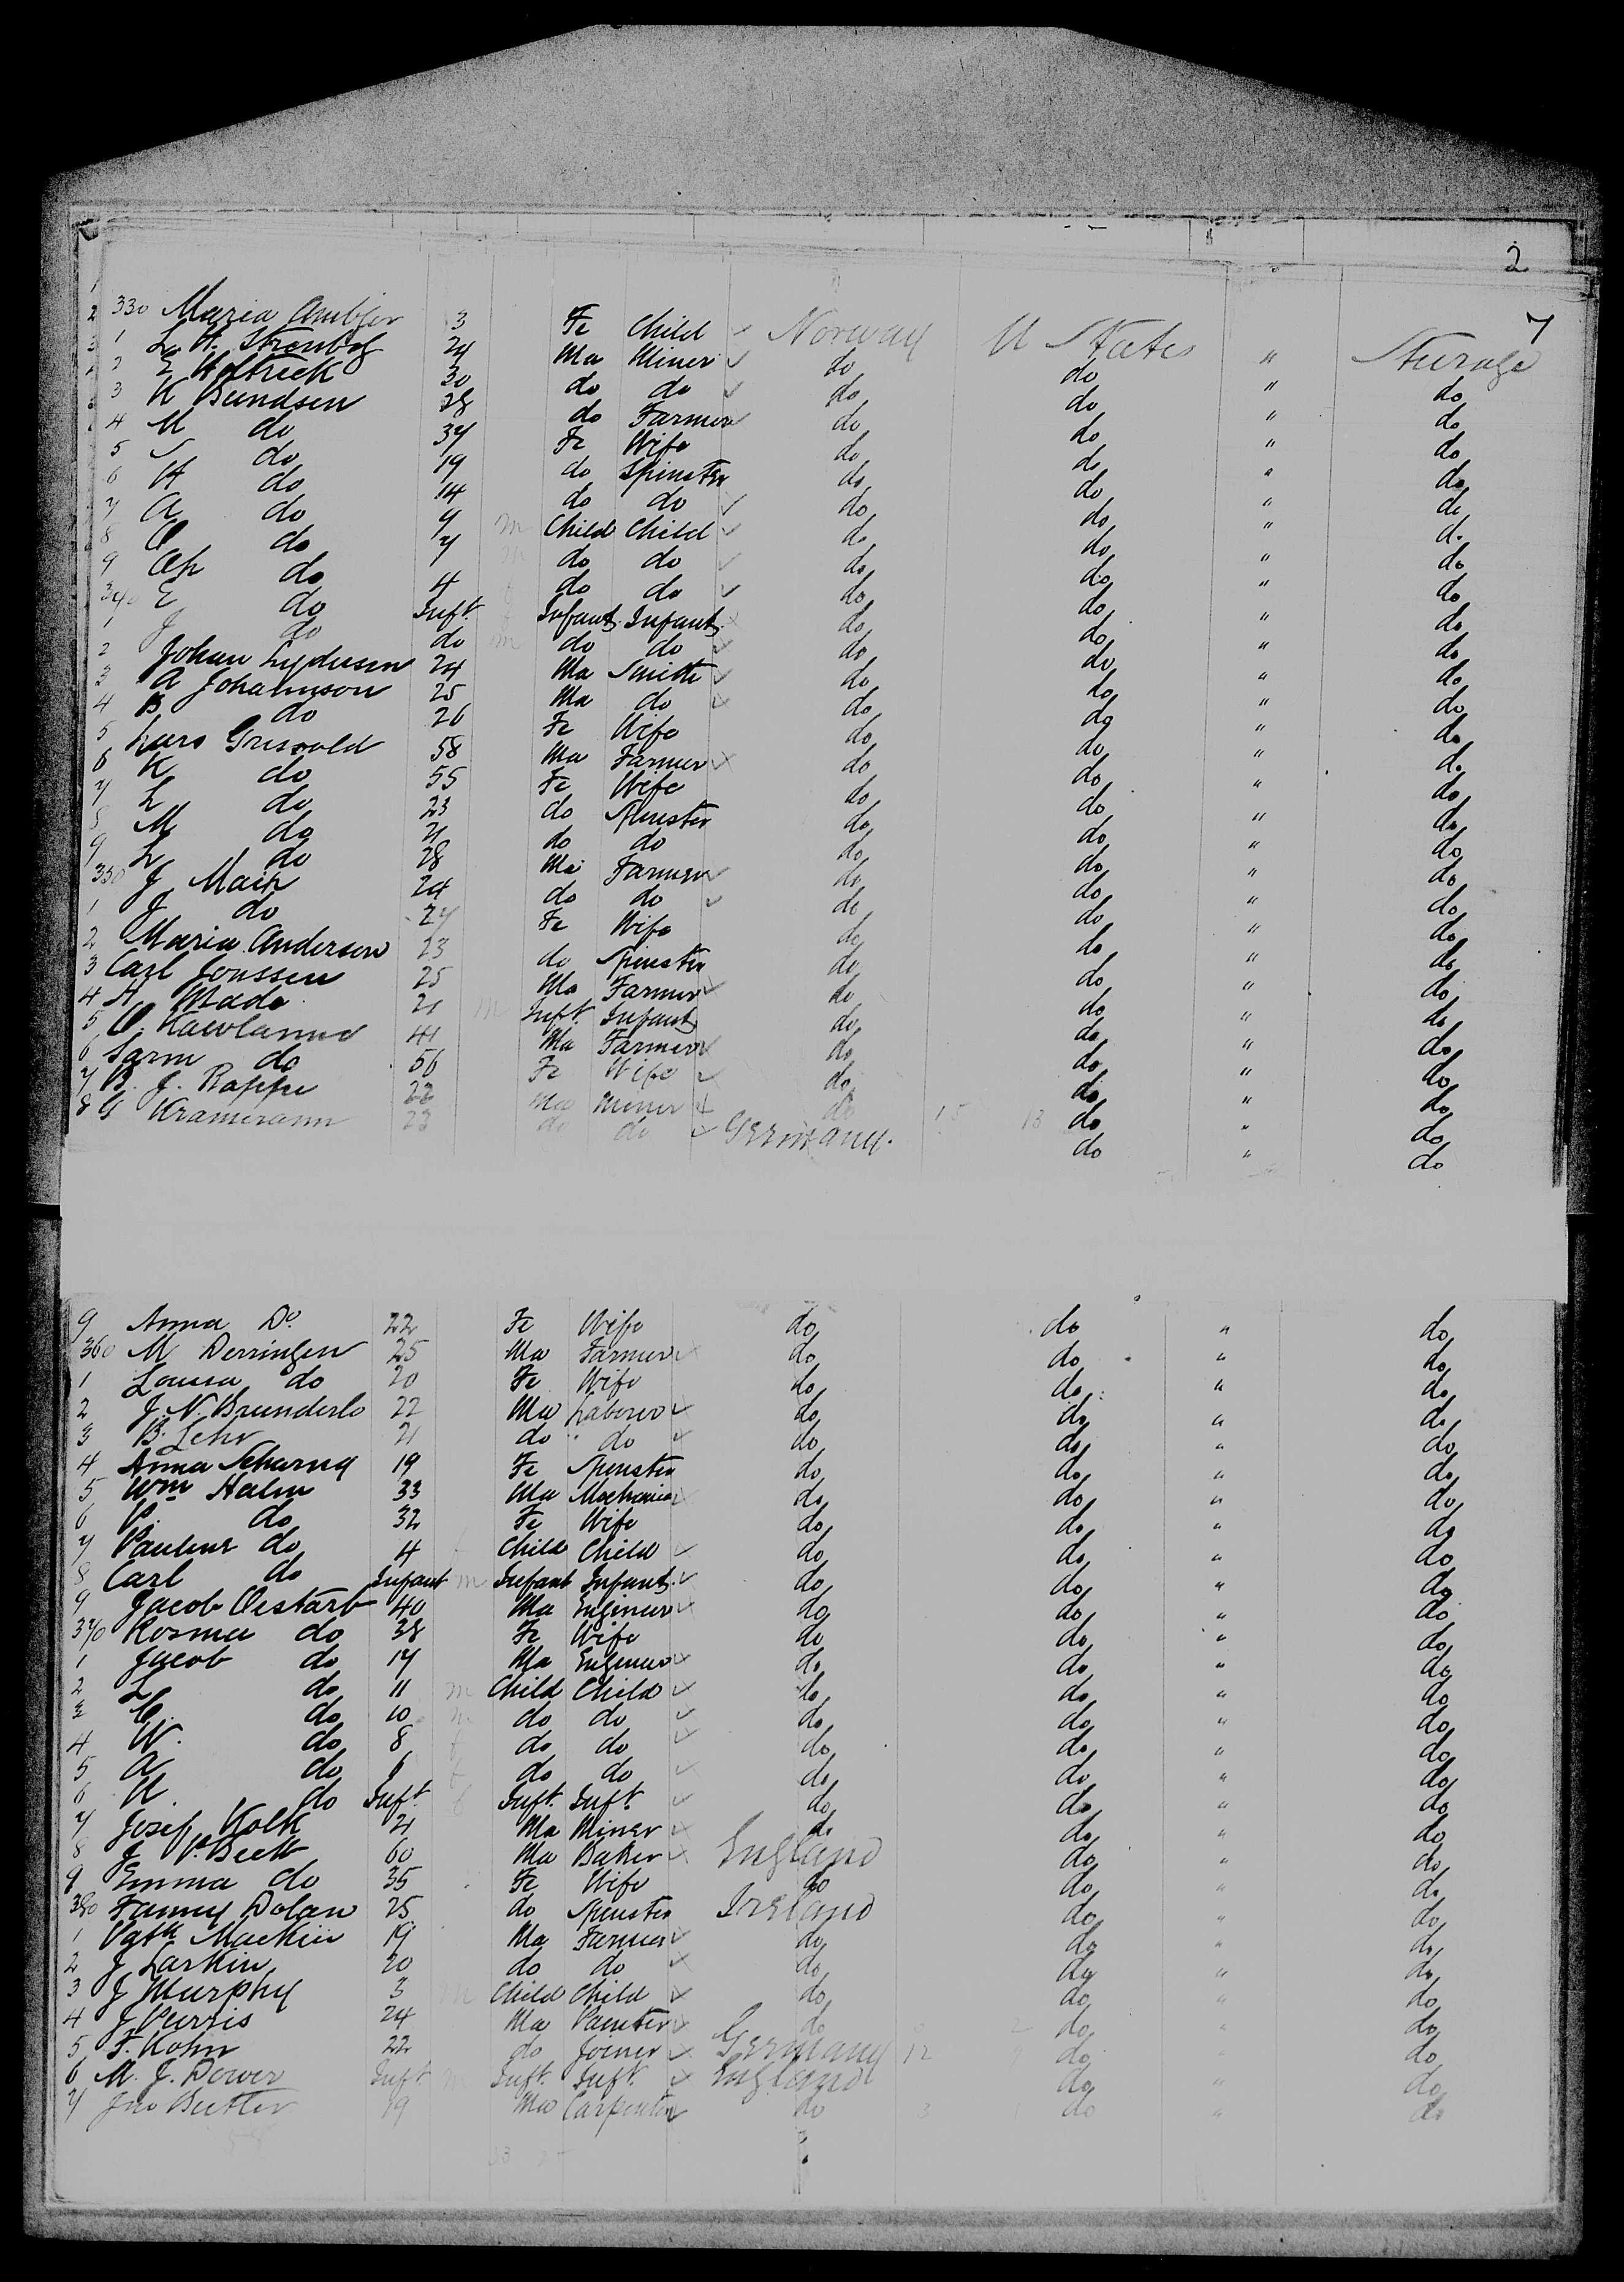 2
7
1
2 330 Maria Ambjor 3 Fe Child Norway U States " Sturage
3 1 L. A. Strombog 24 Ma Miner do do " do
2 E Woltreck 30 do do do do " do
3 K Bundsen 38 do Farmer do do " do
4 M do 37 Fe Wife do do " do
5 do 19 do Spinster do do " do
6 H do 14 do do do do " do
7 A do 9 m Child Child do do " do
8 O do 7 m do do do do " do
9 Ch do 4 do do do do " do
340 E do Inft. Infant Infant do do " do
1 J do do m do do do do " do
2 Johan Lydersen 24 Ma Smith do do " do
3 A Johannson 25 Ma do do do " do
4 B do 26 Fe Wife do do " do
5 Lars Grisvold 58 Ma Farmer do do " do
6 K do 55 Fe Wife do do " do
7 L do 23 do Spinster do do " do
8 M do 21 do do do do " do
9 L do 28 Ma Farmer do do " do
350 J Mach 24 do do do do " do
1 J do 27 Fe Wife do do " do
2 Maria Anderson 23 do Spinster do do " do
3 Carl Jonssen 25 Ma Farmer do do " do
4 A Mado 21 m Inft. Infant do do " do
5 O. 41 Ma Farmer do do " do
6 do 56 Fe Wife do do " do
7 B. J. Rappe 22 Ma Miner do 15 18 do " do
8 G Kramerann 23 do do Germany. do " do
9 Anna Do. 22 Fe Wife do do " do
360 M Derringen 25 Ma Farmer do do " do
1 Louisa do 20 Fe Wife do do " do
2 J. N. Brunderlo 22 Ma Laborer do do " do
3 B. Lehr 21 do do do do " do
4 Anna Scharng 19 Fe Spinster do do " do
5 Wm Halm 33 Ma Mechanic do do " do
6 P. do 32 Fe Wife do do " do
7 Pauline do 4 f Child Child do do " do
8 Carl do Infant m Infant Infant do do " do
9 Jacob Oestarb 40 Ma Engineer do do " do
370 Rosina do 38 Fe Wife do do " do
1 Jacob do 17 Ma Engineer do do " do
2 L do 11 m Child Child do do " do
3 C. do 10 m do do do do " do
4 W. do 8 f do do do do " do
5 A do f do do do do " do
6 M do Inft. f Inft. Inft. do do " do
7 Josef Kolk 21 Ma Miner do do " do
8 J P. Beck 60 Ma Baker England do " do
9 Emma do 35 Fe Wife do do " do
380 Fanny Dolan 25 do Spinster Ireland do " do
1 Patk Mackin 19 Ma Farmer do do " do
2 J Larkin 20 do do do do " do
3 J Murphy 3 m Child Child do do " do
4 J Purris 24 Ma Painter do do " do
5 F. Kohn 22 do Joiner Germany 12 do " do
6 M. J. Dower Inft m Inft. Inft. England do " do
7 Jno Butler 19 Ma Carpenter do 3 do " do